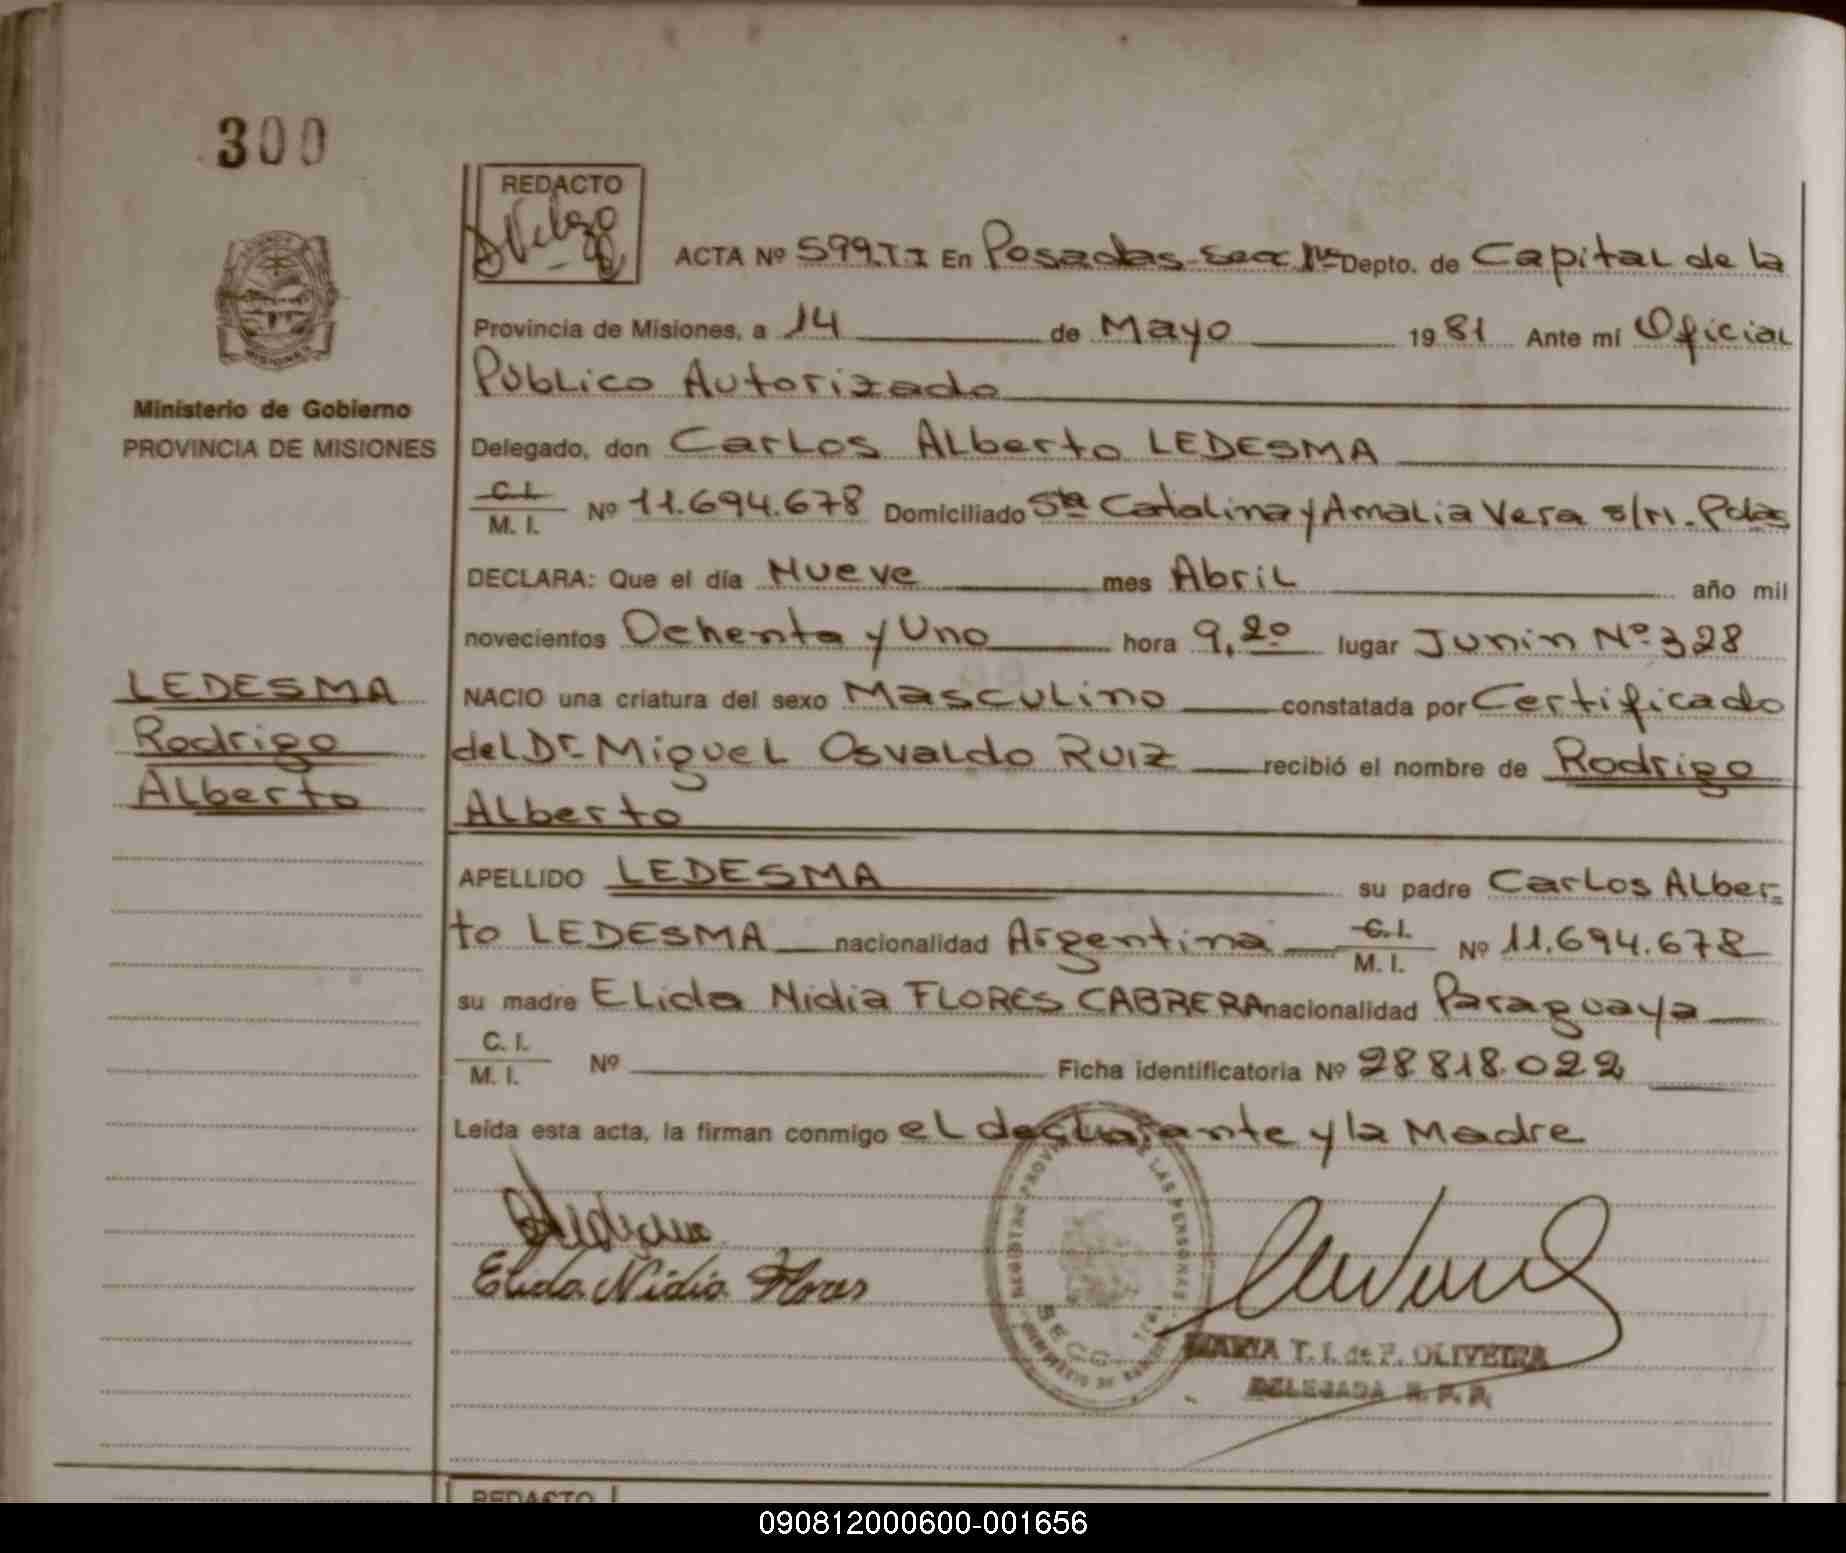 300
REDACTO
ACTA Nº 599.II En Posadas-Secc 1ra Depto. de Capital de la
Provincia de Misiones, a 14 de Mayo 1981 Ante mí Oficial
Público Autorizado
Ministerio de Gobierno
PROVINCIA DE MISIONES
Delegado, don Carlos Alberto LEDESMA
C.I.
M. I. Nº 11.694.678 Domiciliado Sta Catalina y Amalia Vera s/n. Pdas
DECLARA: Que el día Nueve mes Abril año mil
novecientos Ochenta y Uno hora 9,20 lugar Junin Nº 328
LEDESMA
Rodrigo
Alberto
NACIO una criatura del sexo Masculino constatada por Certificado
del Dr. Miguel Osvaldo RUIZ recibió el nombre de Rodrigo
Alberto
APELLIDO LEDESMA su padre Carlos Alber-
to LEDESMA nacionalidad Argentina C.I. M. I. Nº 11.694.678
su madre Elida Nidia FLORES CABRERA nacionalidad Paraguaya
C. I.
M. I. Nº Ficha identificatoria Nº 28818.022
Leída esta acta, la firman conmigo el declarante y la Madre
Elida Nidia Flores
MARIA T. I. de F. OLIVEIRA
DELEGADA R. P. P.
REDACTO
090812000600-001656